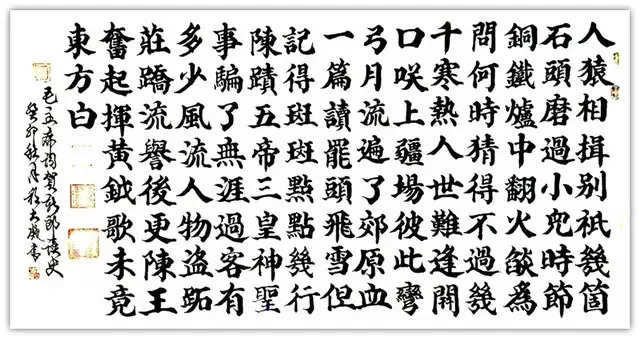 人猿相揖別祇幾箇
石頭磨過小兒時節
銅鐵爐中翻火燄為
問何時猜得不過幾
千寒熱人世難逢開
口咲上疆場彼此彎
弓月流遍了郊原血
一篇讀罷頭飛雪但
記得斑斑點點幾行
陳蹟五帝三皇神聖
事騙了無涯過客有
多少風流人物盜跖
莊蹻流譽後更陳王
奮起揮黃鉞歌未竟
東方白
毛主席詞賀新郎讀史
癸卯秋月